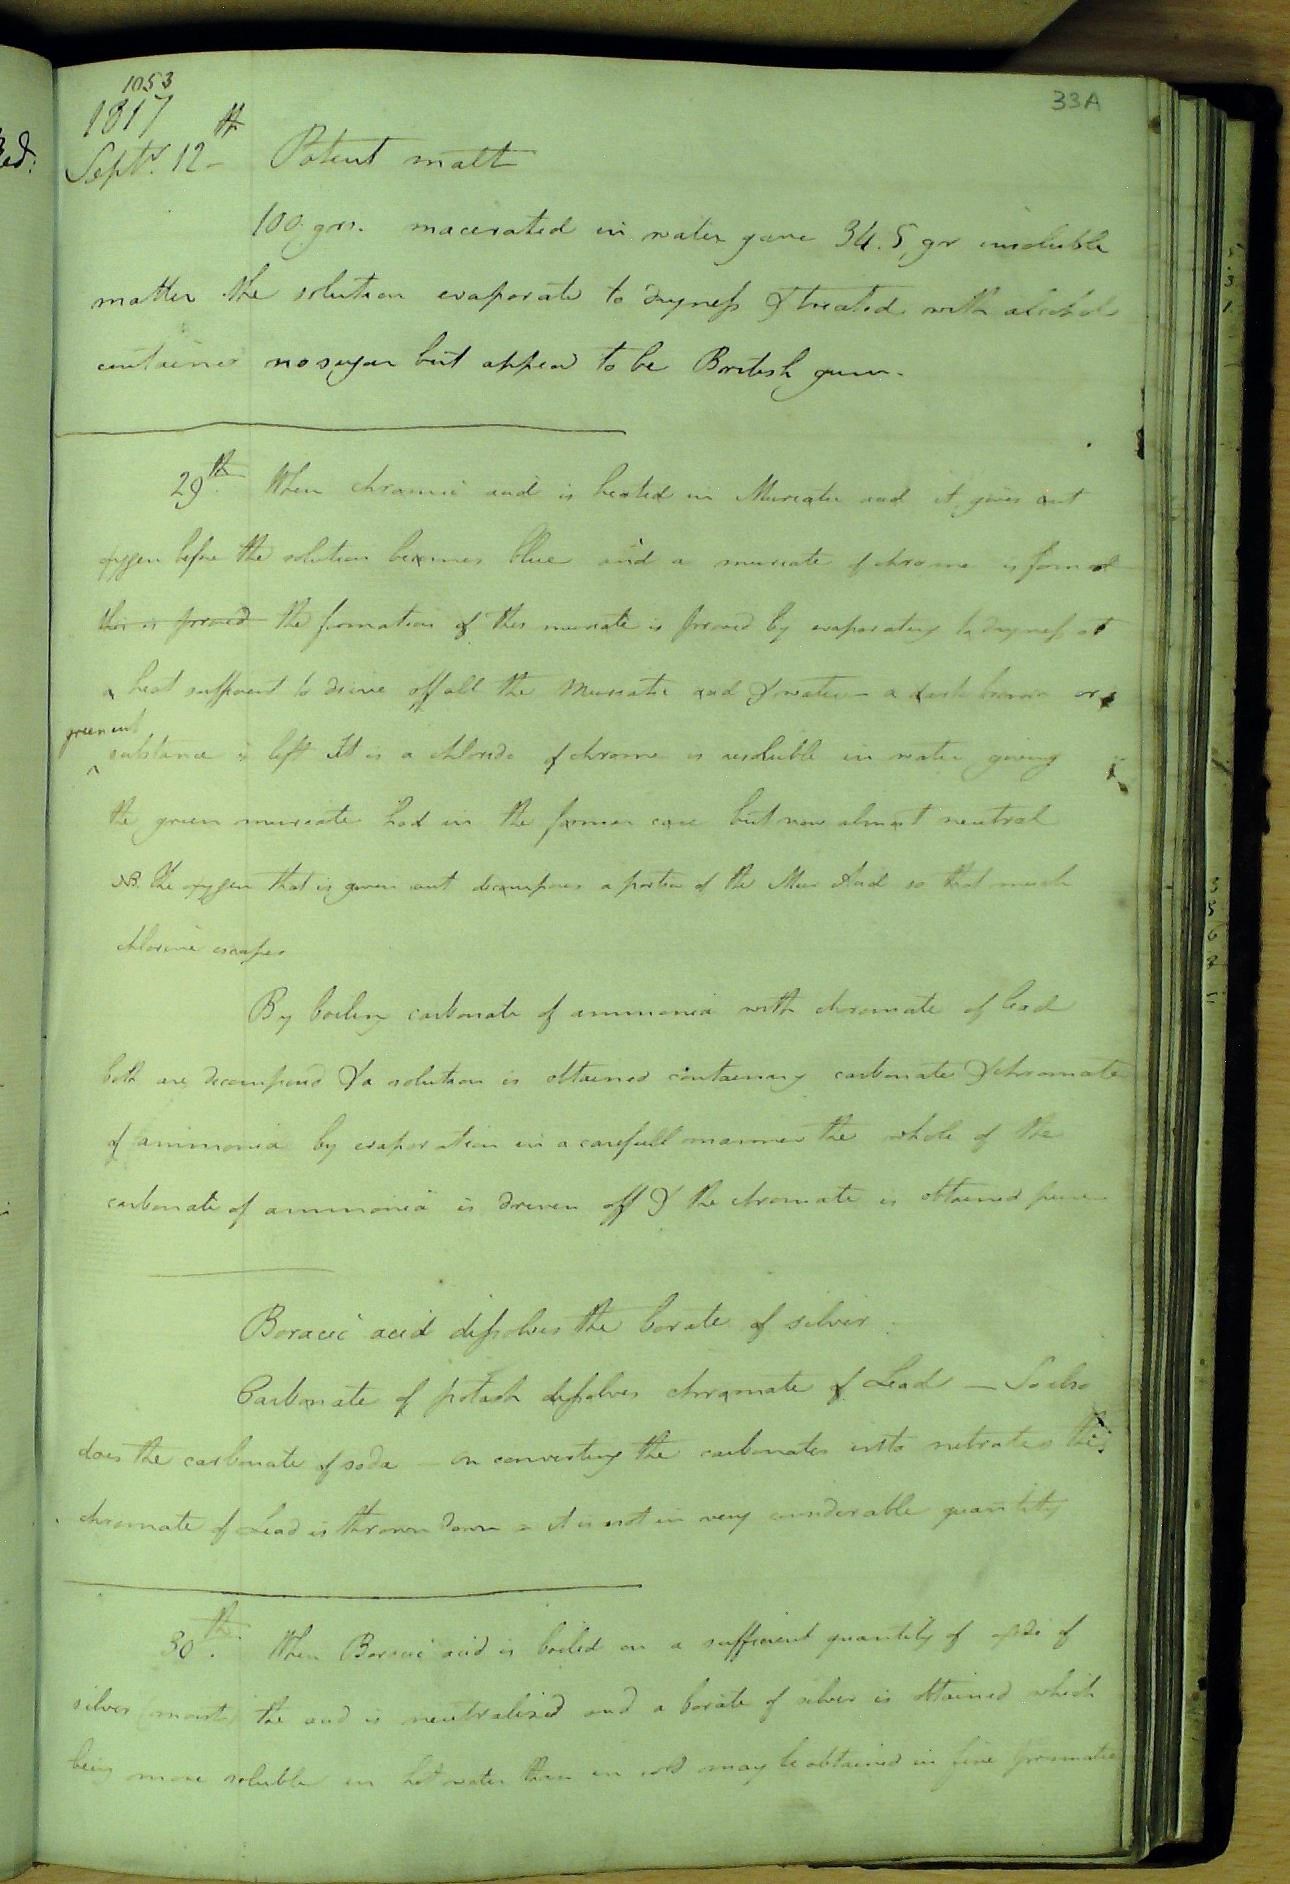 1053
33A
1817
Septr. 12th Patent malt
100 grs. macerated in water gave 34.5 gr insoluble
matter the solution evaporate to dryness & treated with alcohol
contained no sugar but appear to be British gum.
29th. When chromic acid is heated in Muriatic acid it gives out
oxygen before the solution becomes blue and a muriate of chrome is formed
this is proved the formation of this muriate is proved by evaporating to dryness at
a heat sufficient to drive off all the Muriatic acid & water - a dark brown or
greenish
substance is left It is a chloride of chrome is resoluble in water giving
the green muriate had in the former case but now almost neutral
NB. the oxygen that is given out decomposes a portion of the Mur Acid so that much
chlorine escapes
By boiling carbonate of ammonia with chromate of lead
both are decomposed & a solution is obtained containing carbonate & chromate
of ammonia by evaporation in a carefull manner the whole of the
carbonate of ammonia is driven off & the chromate is obtained pure
Boracic acid dissolves the borate of silver
Carbonate of potash dissolves chromate of Lead — So also
does the carbonate of soda - on converting the carbonates into nitrates the
chromate of Lead is thrown down - it is not in very considerable quantity
30th. When Boracic acid is boiled on a sufficient quantity of oxide of
silver (moist) the acid is neutralised and a borate of silver is obtained which
being more soluble in hot water than in cold may be obtained in fine prismatic